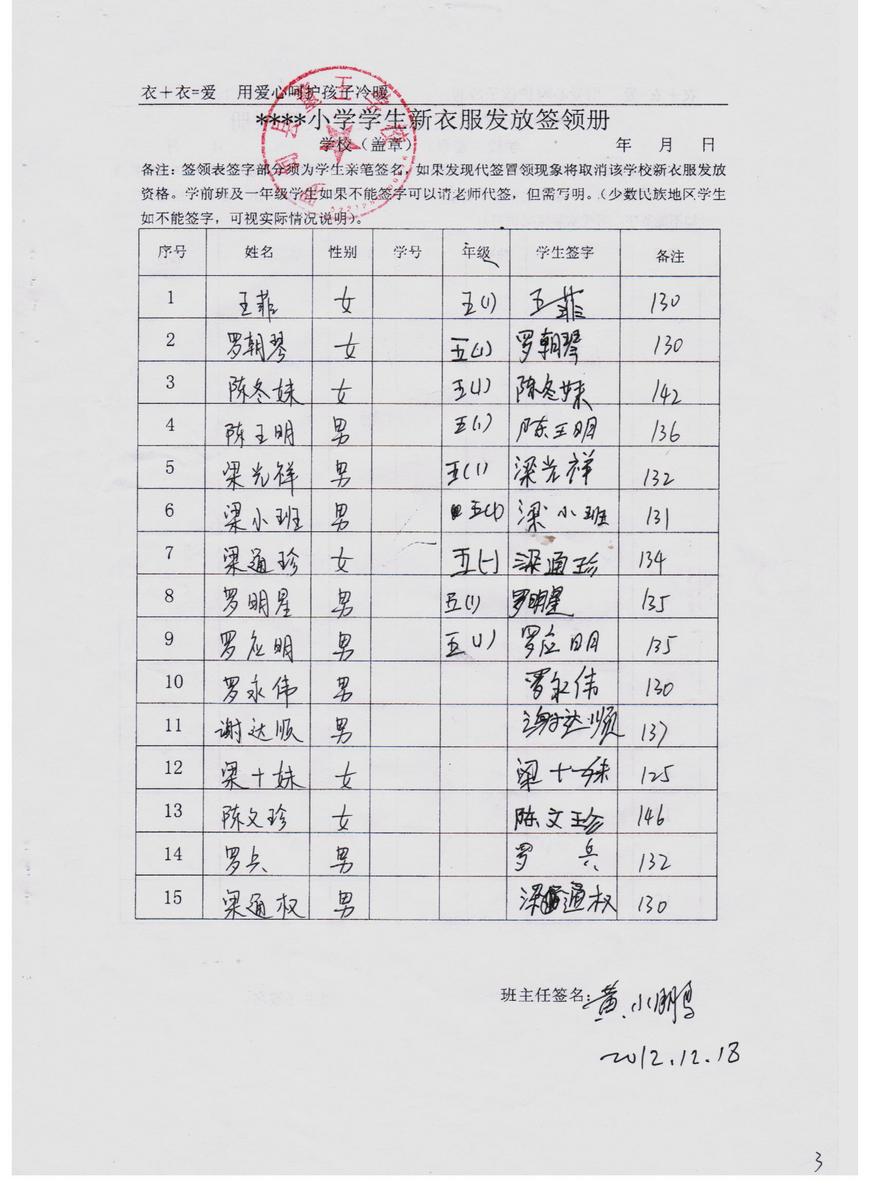 衣+衣=爱 用爱心呵护孩子冷暖
****小学学生新衣服发放签领册
学校(盖章) 年 月 日
备注:签领表签字部分须为学生亲笔签名,如果发现代签冒领现象将取消该学校新衣服发放
资格。学前班及一年级学生如果不能签字可以请老师代签,但需写明。(少数民族地区学生
如不能签字,可视实际情况说明)。
序号 姓名 性别 学号 年级 学生签字 备注
1 王菲 女 五(1) 王菲 130
2 罗朝琴 女 五(1) 罗朝琴 130
3 陈冬妹 女 五(1) 陈冬妹 142
4 陈王明 男 五(1) 陈王明 136
5 梁光祥 男 五(1) 梁光祥 132
6 梁小班 男 五(1) 梁小班 131
7 梁通珍 女 五(一) 梁通珍 134
8 罗明星 男 五(1) 罗明星 135
9 罗应明 男 五(1) 罗应明 135
10 罗永伟 男 罗永伟 130
11 谢达顺 男 谢达顺 137
12 梁十妹 女 梁十妹 125
13 陈文珍 女 陈文珍 146
14 罗兵 男 罗兵 132
15 梁通权 男 梁通权 130
班主任签名:黄小鹏
2012.12.18
3